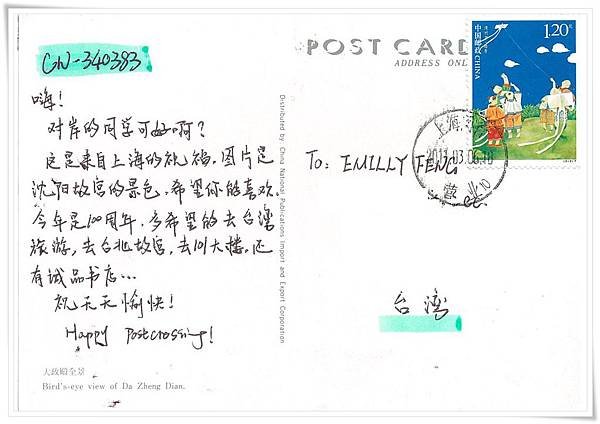 CN-340383
嗨!
对岸的同学可好啊?
这是来自上海的祝福,图片是
沈阳故宫的景色,希望你能喜欢.
今年是100周年,多希望能去台湾
旅游,去台北故宫,去101大楼,还
有诚品书店...
祝天天愉快!
Happy Postcrossing!
大政殿全景
Bird's-eye view of Da Zheng Dian.
Distributed by China National Publications Import and Export Corporation
POST CARD
ADDRESS ONL
1.20元
中国邮政 CHINA
上海
2011.03.06.10
营业
To: EMILLY FENG
台湾